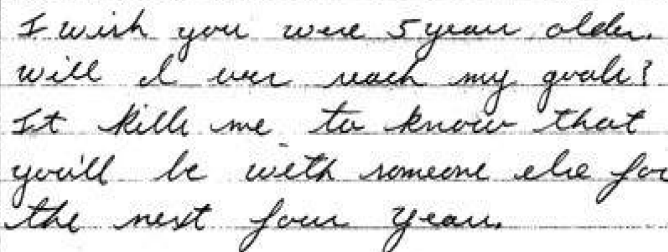 I wish you were 5 years older.
Will I ever reach my goals?
It kills me to know that
you'll be with someone else for
the next four years.